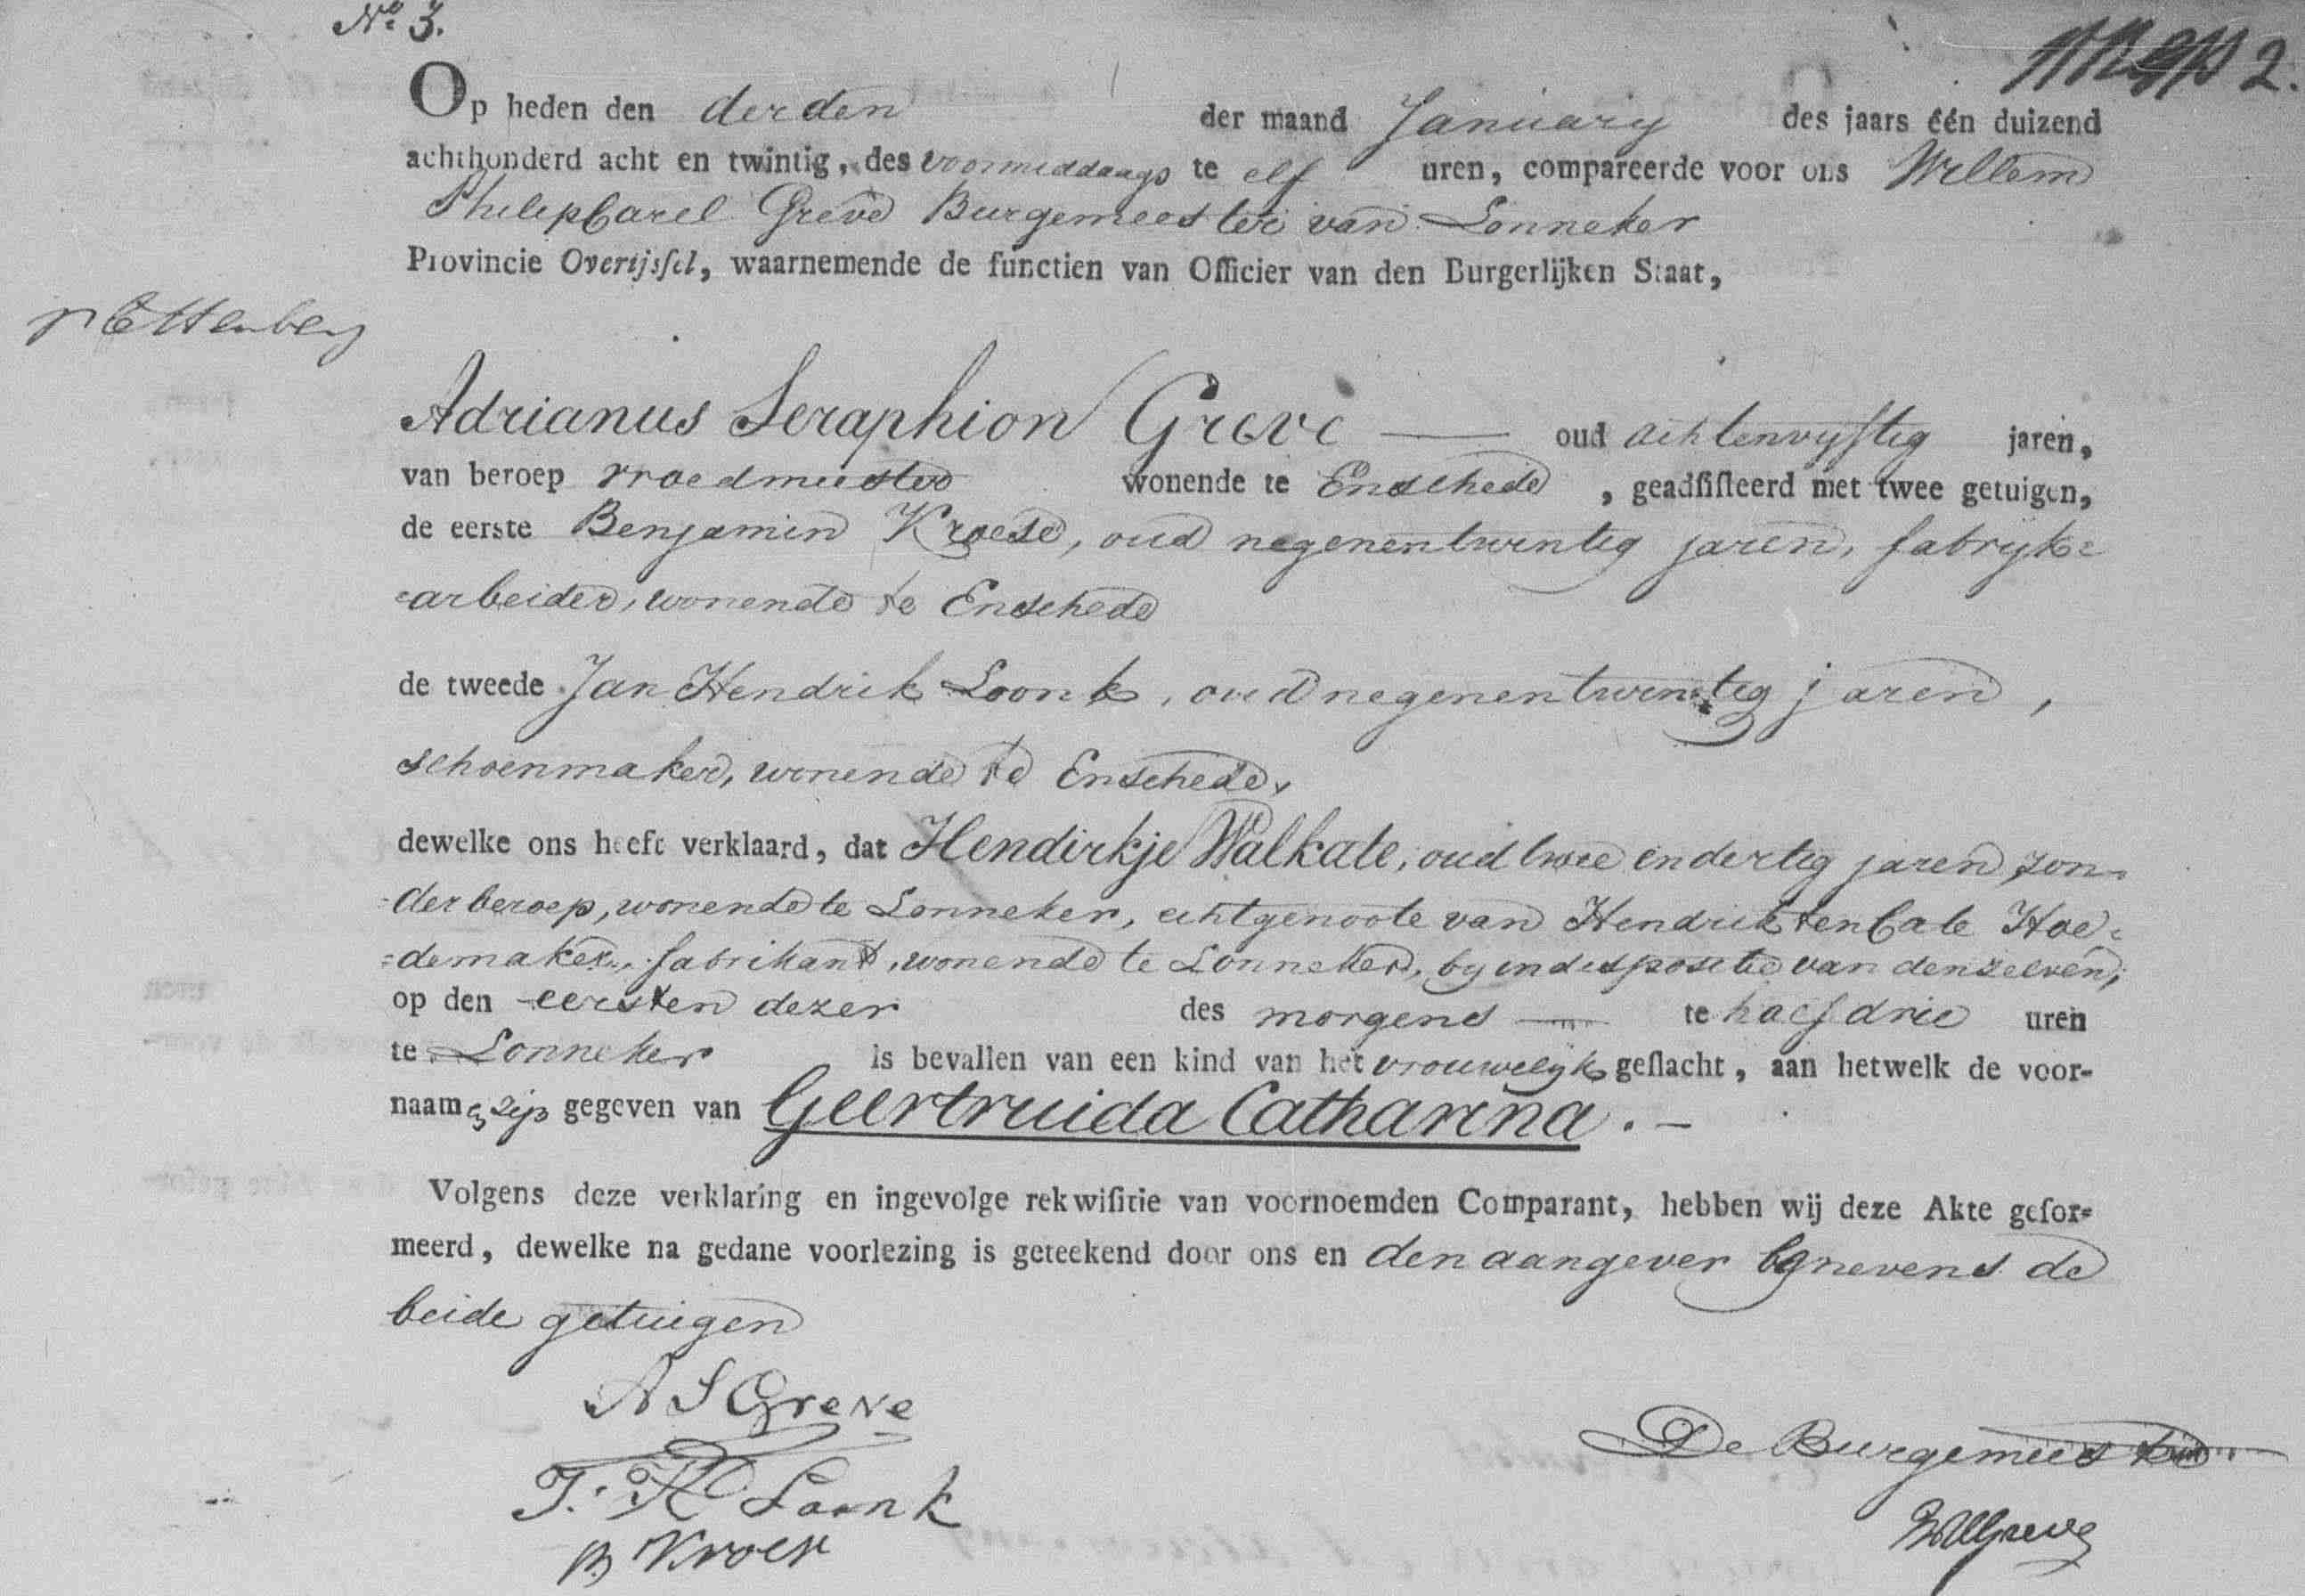 No. 3.
2.
Op heden den derden der maand January des jaars één duizend
achthonderd acht en twintig, des voormiddaags te elf uren, compareerde voor ons Willem
Philip Carel Greve Burgemeester van Lonneker
Provincie Overijssel, waarnemende de functien van Officier van den Burgerlijken Staat,
Adrianus Seraphion Greve — oud achtenvyftig jaren,
van beroep vroedmeester wonende te Enschede, geadsisteerd met twee getuigen,
de eerste Benjamin Kroese, oud negenentwintig jaren, fabryk=
=arbeider, wonende te Enschede
de tweede Jan Hendrik Loonk, oud negenentwintig jaren,
schoenmaker, wonende te Enschede,
dewelke ons heeft verklaard, dat Hendirkje Walkate, oud twee en dertig jaren, zon=
=der beroep, wonende te Lonneker, echtgenoote van Hendrik ten Cate Hoe=
=demaker, fabrikant, wonende te Lonneker, by indispositie van denzelven,
op den eersten dezer des morgens — te half drie uren
te Lonneker is bevallen van een kind van het vrouwelyk geslacht, aan hetwelk de voor-
naam en zijn gegeven van Geertruida Catharina. —
Volgens deze verklaring en ingevolge rekwisitie van voornoemden Comparant, hebben wij deze Akte gefor=
meerd, dewelke na gedane voorlezing is geteekend door ons en den aangever benevens de
beide getuigen
A S Greve
J. H Loonk
B Kroese
De Burgemeester
Greve